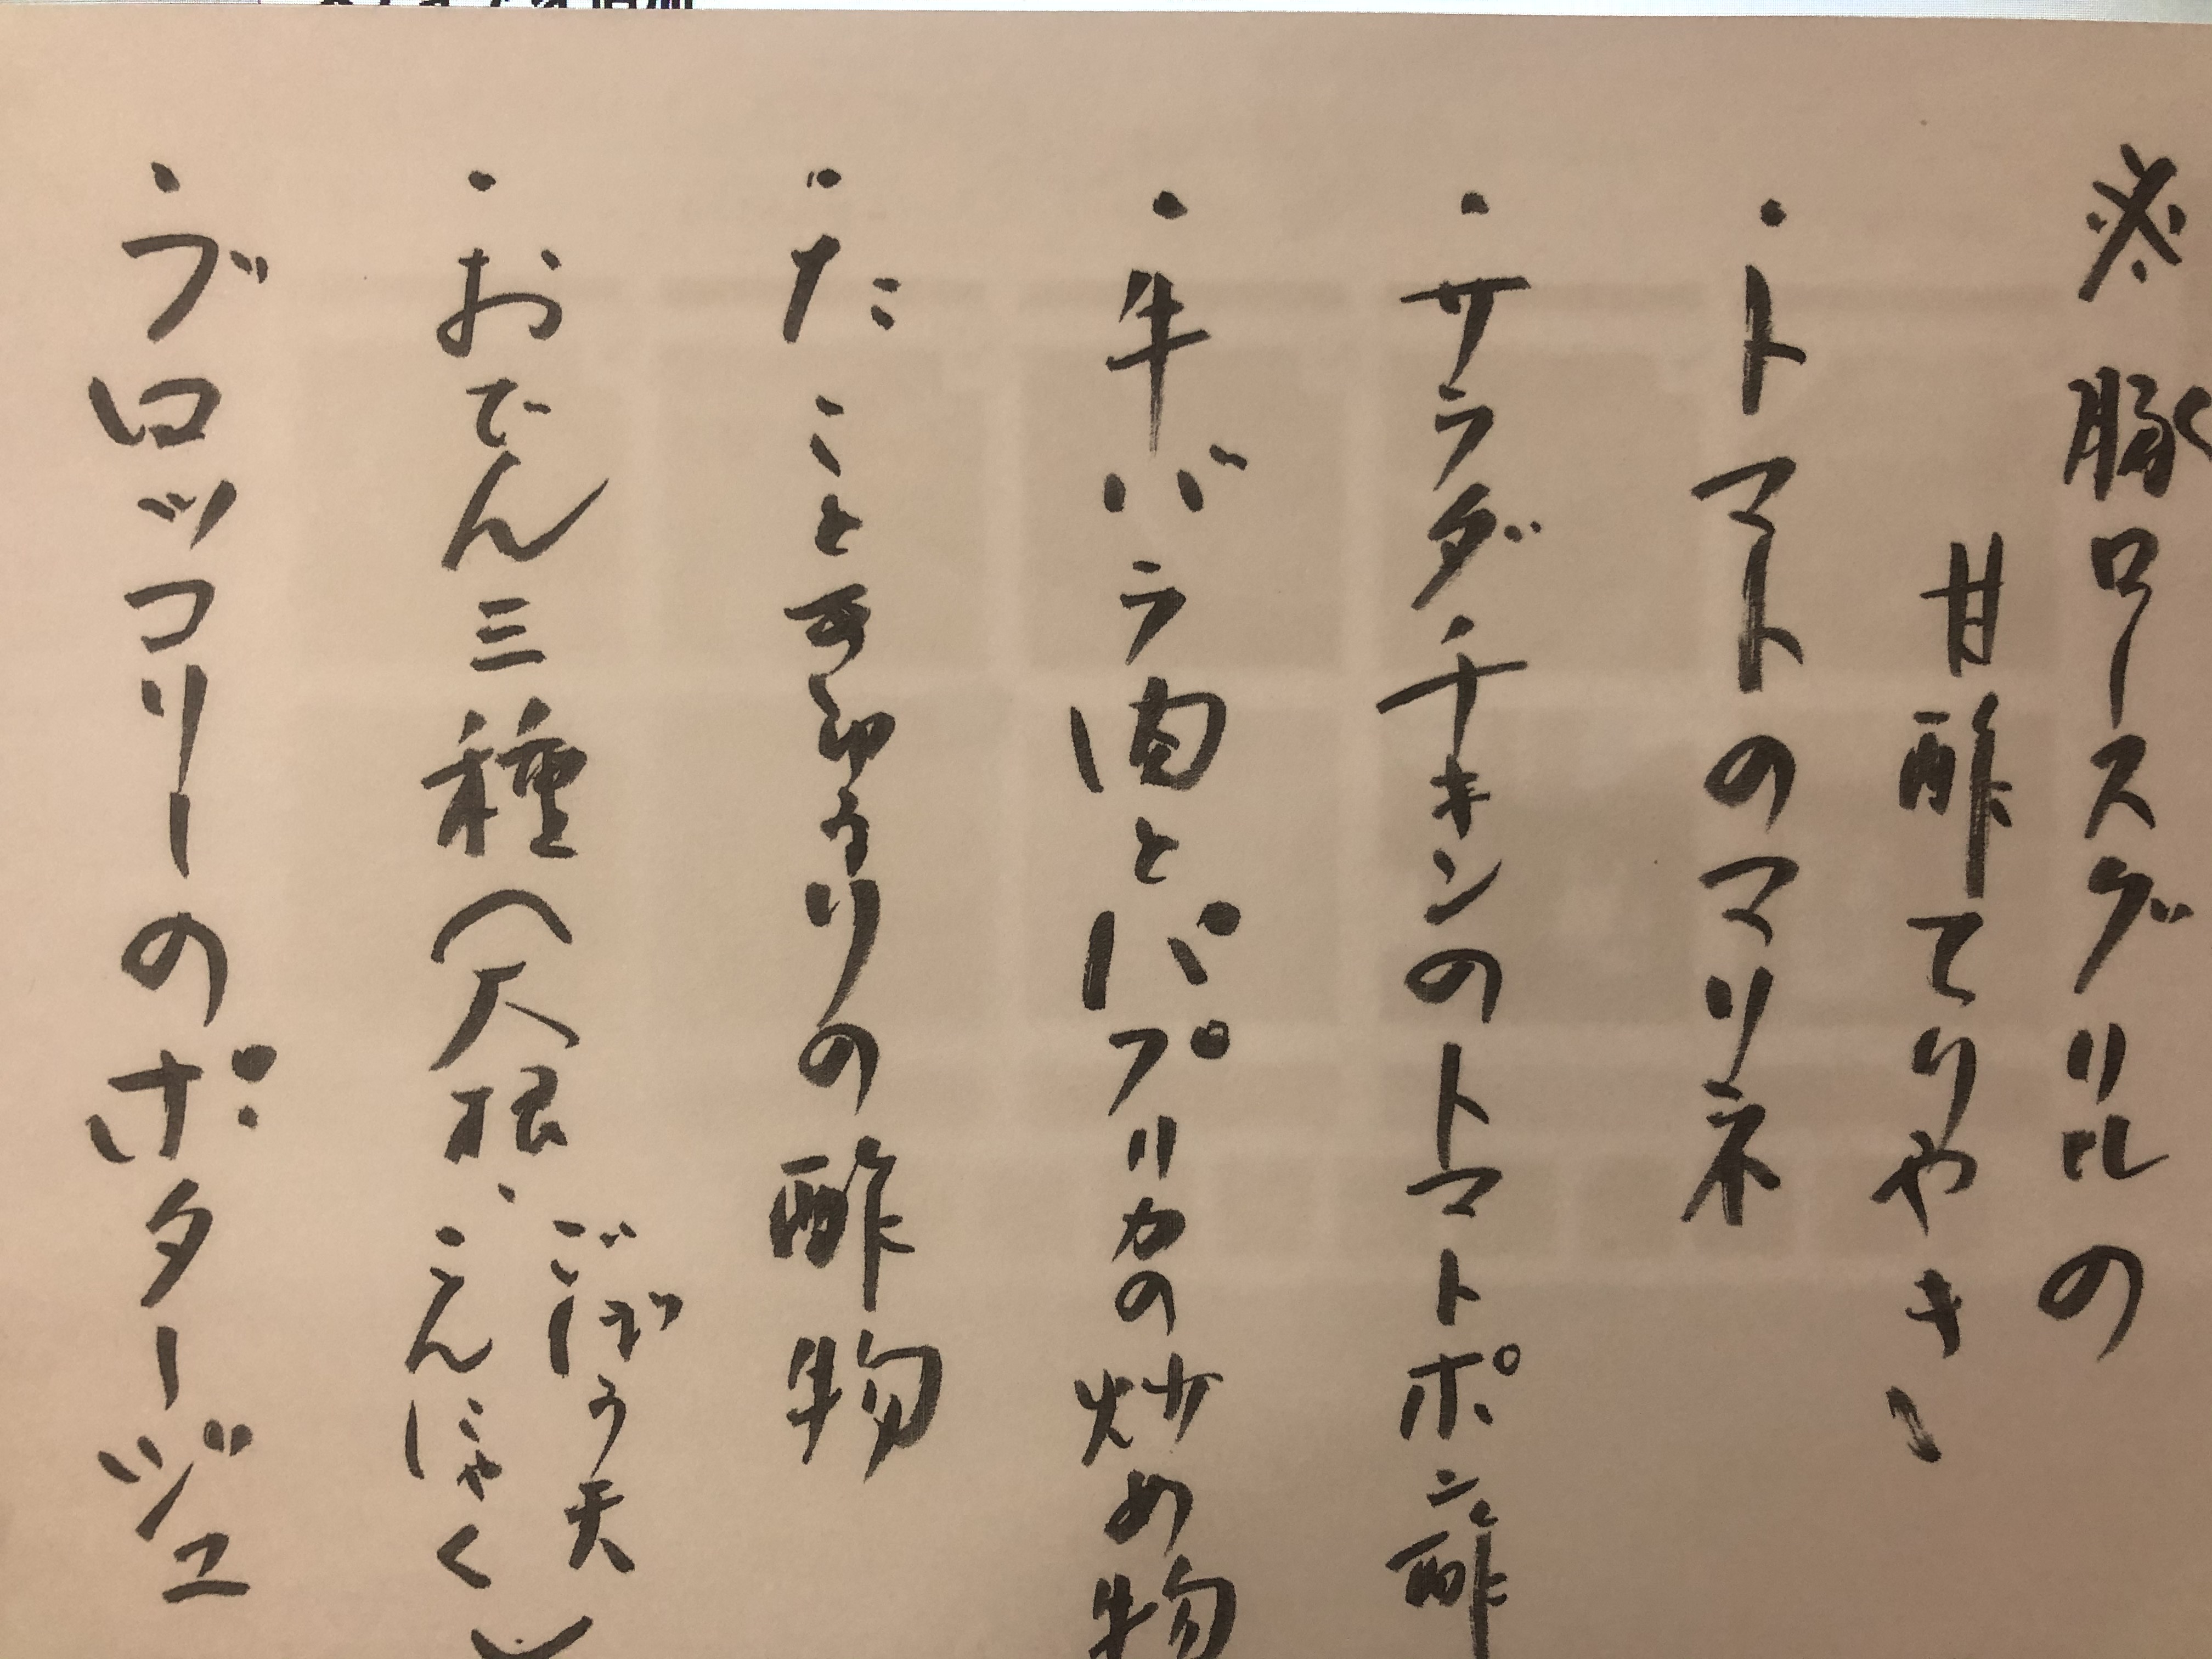 ※豚ロースグリルの
甘酢てりやき、
・トマトのマリネ
・サラダチキンのトマトポン酢
・牛バラ肉とパプリカの炒め物
・たこときゅうりの酢物
・おでん三種(大根、
ごぼう天
こんにゃく)
・ブロッコリーのポタージュ